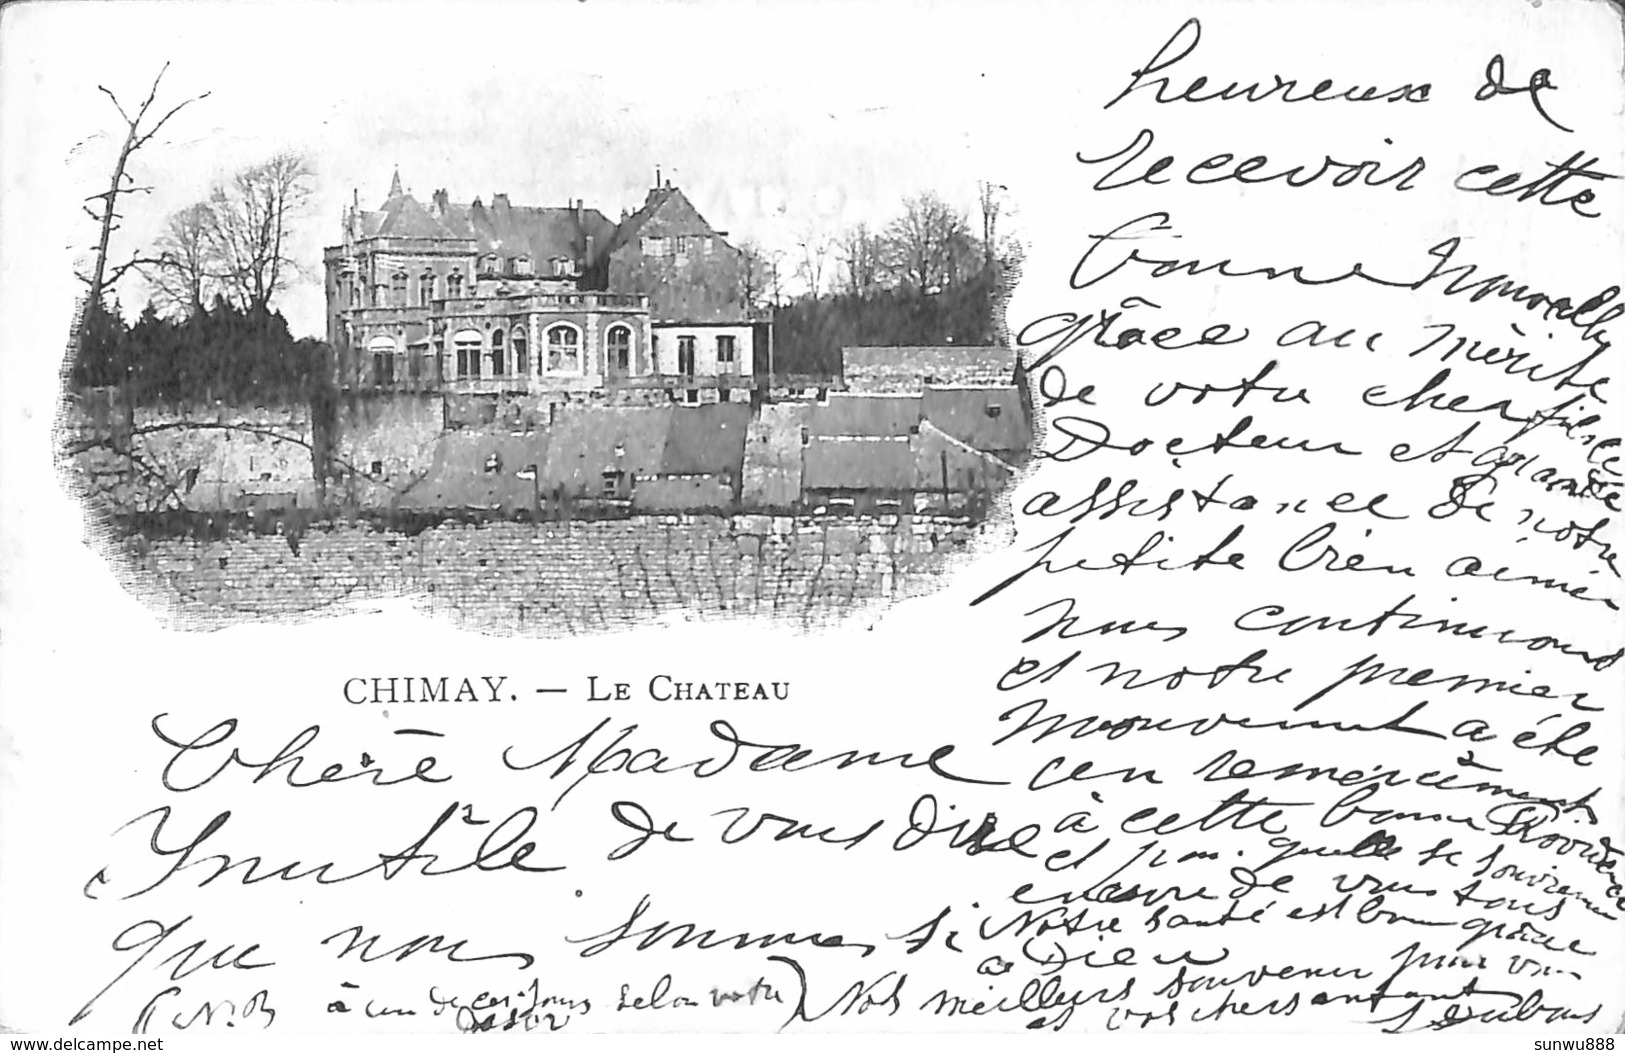 CHIMAY. — LE CHATEAU
Chère Madame
Inutile de vous dire
que nous sommes si
heureux de
recevoir cette
bonne nouvelle
grâce au mérite
de votre cher fils le
Docteur et grande
assistance de notre
petite bien aimée
nous continuons
et notre premier
mouvement a été
en remerciement
à cette bonne Providence
et pour quelle se souvienne
encore de vous tous
Notre santé est bonne grâce
à Dieu
Nos meilleurs souvenirs pour vous
et vos chers enfants
(N.B. à un de ces jours selon votre
désir)
delcampe.net
sunwu888